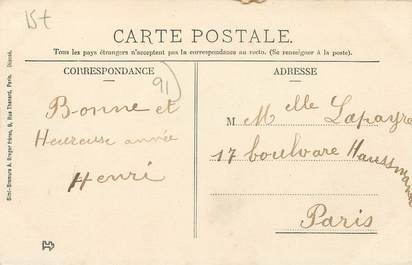 15t
CARTE POSTALE.
Tous les pays étrangers n'acceptent pas la correspondance au recto. (Se renseigner à la poste).
CORRESPONDANCE
ADRESSE
91
Bonne et
Heureuse année
Henri
M. Melle Lapayre
17 boulvare Haussmann
Paris
Simi-Bromure A. Breger Frères, 9, Rue Thénard, Paris. Déposé.